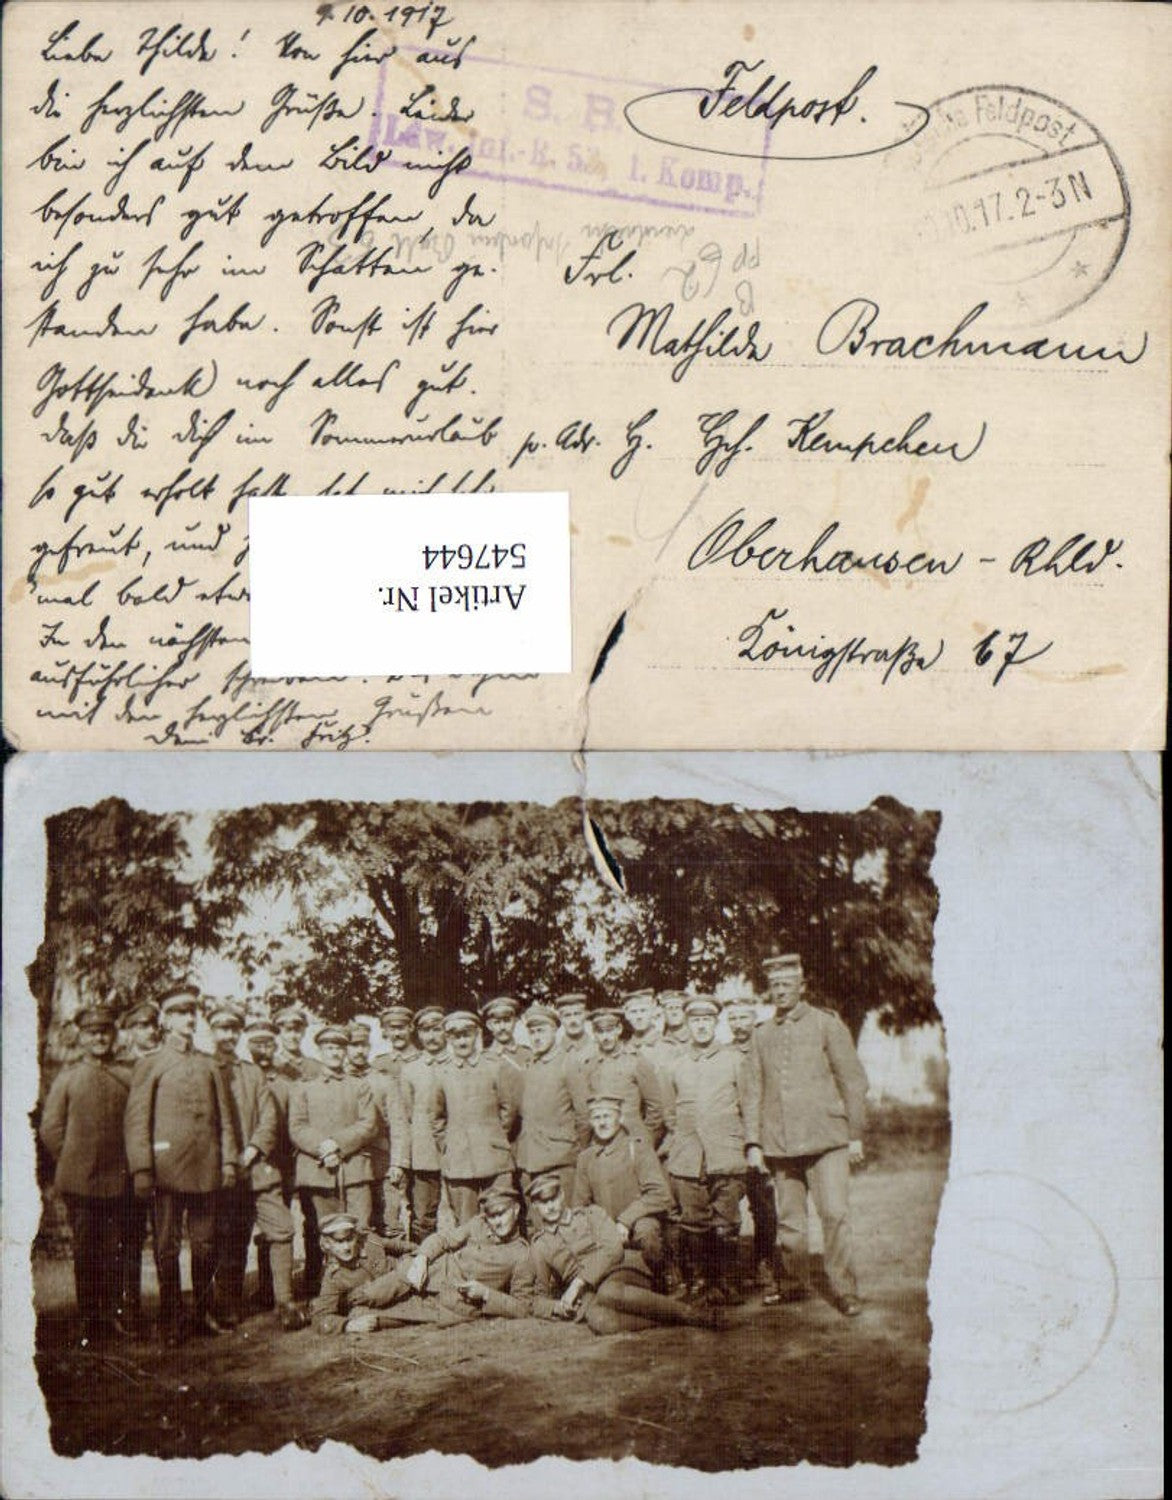 9.10.1917
Liebe Thilde! Von hier aus
die herzlichsten Grüße. Leider
bin ich auf dem Bild nicht
besonders gut getroffen, da
ich zu sehr im Schatten ge-
standen habe. Sonst ist hier
Gottseidank noch alles gut.
Daß du dich im Sommerurlaub
so gut erholt hast, hat mich
gefreut, und
mal bald
In den nächsten
ausführlicher schreiben.
mit den herzlichsten Grüßen
Dein Br. Fritz.
S. B.
Ldw. Inf.-R. 53 1. Komp.
Feldpost.
Feldpost
10.17.2-3N
Frl.
Mathilde Brachmann
p. Adr. H. Hch. Kempchen
Oberhausen - Rhld.
Königstraße 67
Artikel Nr.
547644